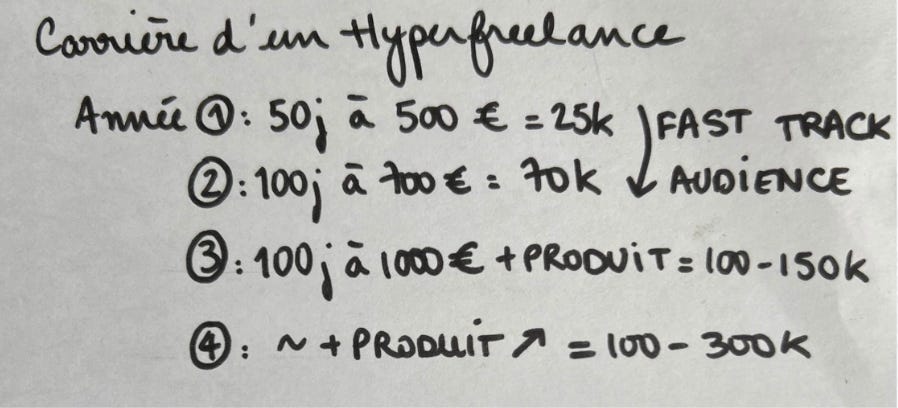 Carrière d'un Hyperfreelance
Année ①: 50j à 500 € = 25k FAST TRACK
②: 100j à 700 € = 70k ↓ AUDIENCE
③: 100j à 1000 € + PRODUIT = 100-150k
④: ~ + PRODUIT ↗ = 100 - 300K